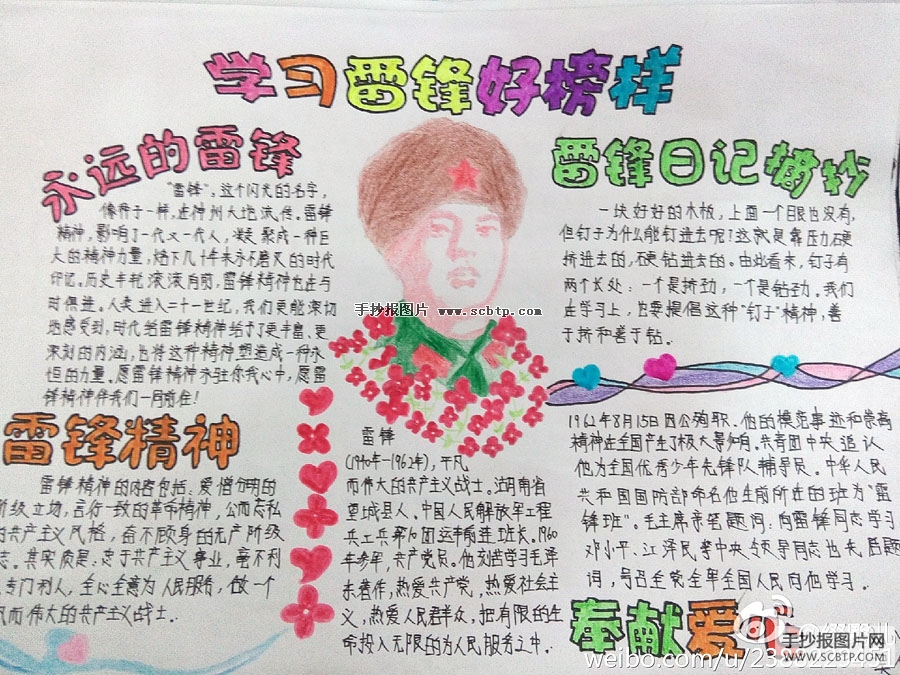 学习雷锋好榜样
永远的雷锋
"雷锋",这个闪光的名字,
像种子一样,在神州大地流传。雷锋
精神,影响了一代又一代人,凝聚成一种巨
大的精神力量,烙下几十年来永不磨灭的时代
印记。历史车轮滚滚向前,雷锋精神也在与
时俱进。人类进入二十一世纪,我们更能深切
地感受到,时代给雷锋精神给予了更丰富、更
深刻的内涵,也将这种精神塑造成一种永
恒的力量。愿雷锋精神永驻你我心中,愿雷
锋精神伴我们一同前往!
雷锋日记摘抄
一块好好的木板,上面一个眼也没有,
但钉子为什么能钉进去呢?这就是靠压力硬
挤进去的,硬钻进去的。由此看来,钉子有
两个长处:一个是挤劲,一个是钻劲。我们
在学习上,也要提倡这种"钉子"精神,善
于挤和善于钻。
手抄报图片 www.scbtp.com
雷锋精神
雷锋精神的内容包括:爱憎分明的
阶级立场,言行一致的革命精神,公而忘私
的共产主义风格,奋不顾身的无产阶级
志。其实质是:忠于共产主义事业,毫不利
专门利人,全心全意为人民服务,做一个
凡而伟大的共产主义战士.
雷锋
(1940年-1962年),平凡
而伟大的共产主义战士。湖南省
望城县人、中国人民解放军工程
兵工兵第10团运输连班长。1960
年参军,共产党员。他刻苦学习毛泽
东著作,热爱共产党,热爱社会主
义、热爱人民群众,把有限的生
命投入无限的为人民服务之中.
1962年8月15日因公殉职.他的模范事迹和崇高
精神在全国产生了极大影响.共青团中央追认
他为全国优秀少年先锋队辅导员。中华人民
共和国国防部命名他生前所在的班为"雷
锋班"。毛主席亲笔题词:向雷锋同志学习
邓小平、江泽民等中央领导同志也先后题
词,号召全党全军全国人民向他学习.
奉献爱
手抄报图片网
WWW.SCBTP.COM
weibo.com/u/23